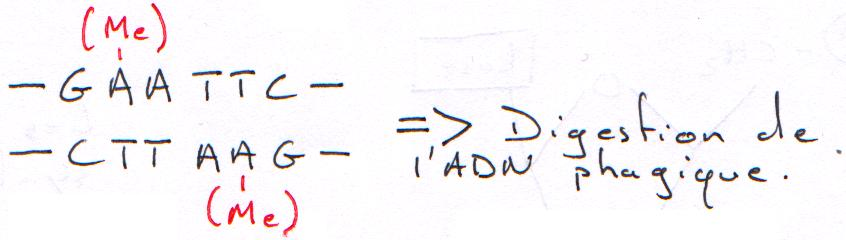 (Me)
- G A A T T C -
- C T T A A G -
(Me)
=> Digestion de
l'ADN phagique.